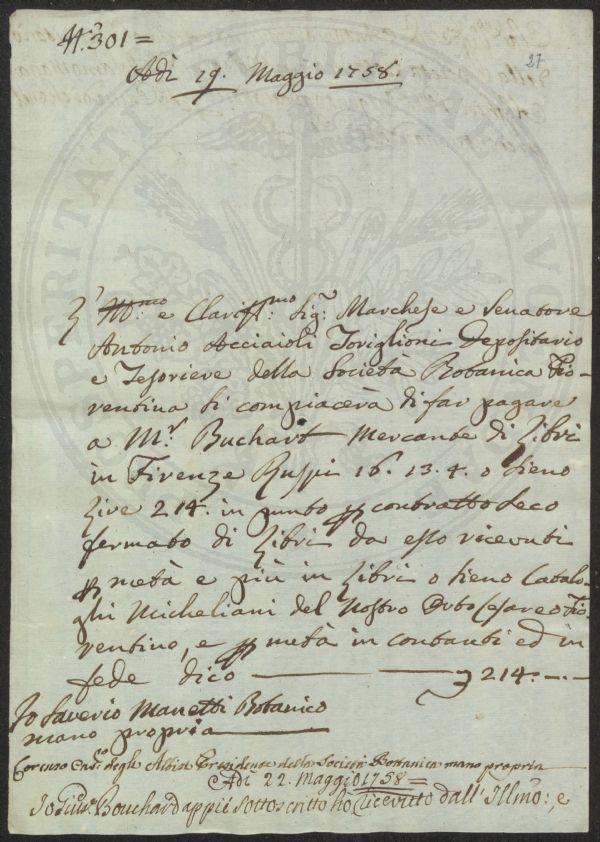 N.° 301=
27
Adì 19. Maggio 1758.
L' Ill.mo e Clariss.mo Sig.r Marchese e Senatore
Antonio Acciaioli Toriglioni Depositario
e Tesoriere della Società Botanica Fio-
rentina si compiacerà di far pagare
a M.r Buchart Mercante di Libri
in Firenze Ruspi 16. 13. 4. o sieno
Lire 214. in punto p contratto seco
fermato di Libri da esso ricevuti
p metà e più in Libri o sieno Catalo-
ghi Micheliani del Nostro Orto Cesareo Fio-
rentino, e p metà in contanti ed in
fede dico 214.-.-
Io Saverio Manetti Botanico
mano propria
Cav.e degli Albizi Presidente della Società Bottanica mano propria
Adì 22. Maggio 1758=
Io Bouchard appiè sottoscritto ho ricevuto dall' Illmo: e